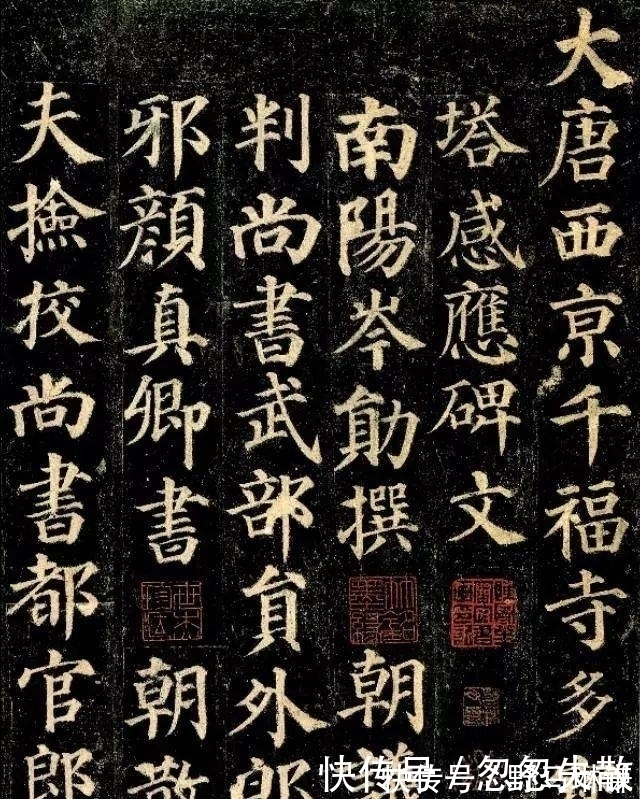 大唐西亰千福寺多
塔感應碑文
南陽岑勛撰 朝議
判尚書武部貟外郎
邪顔真卿書 朝散
夫撿校尚書都官郎
快传号/